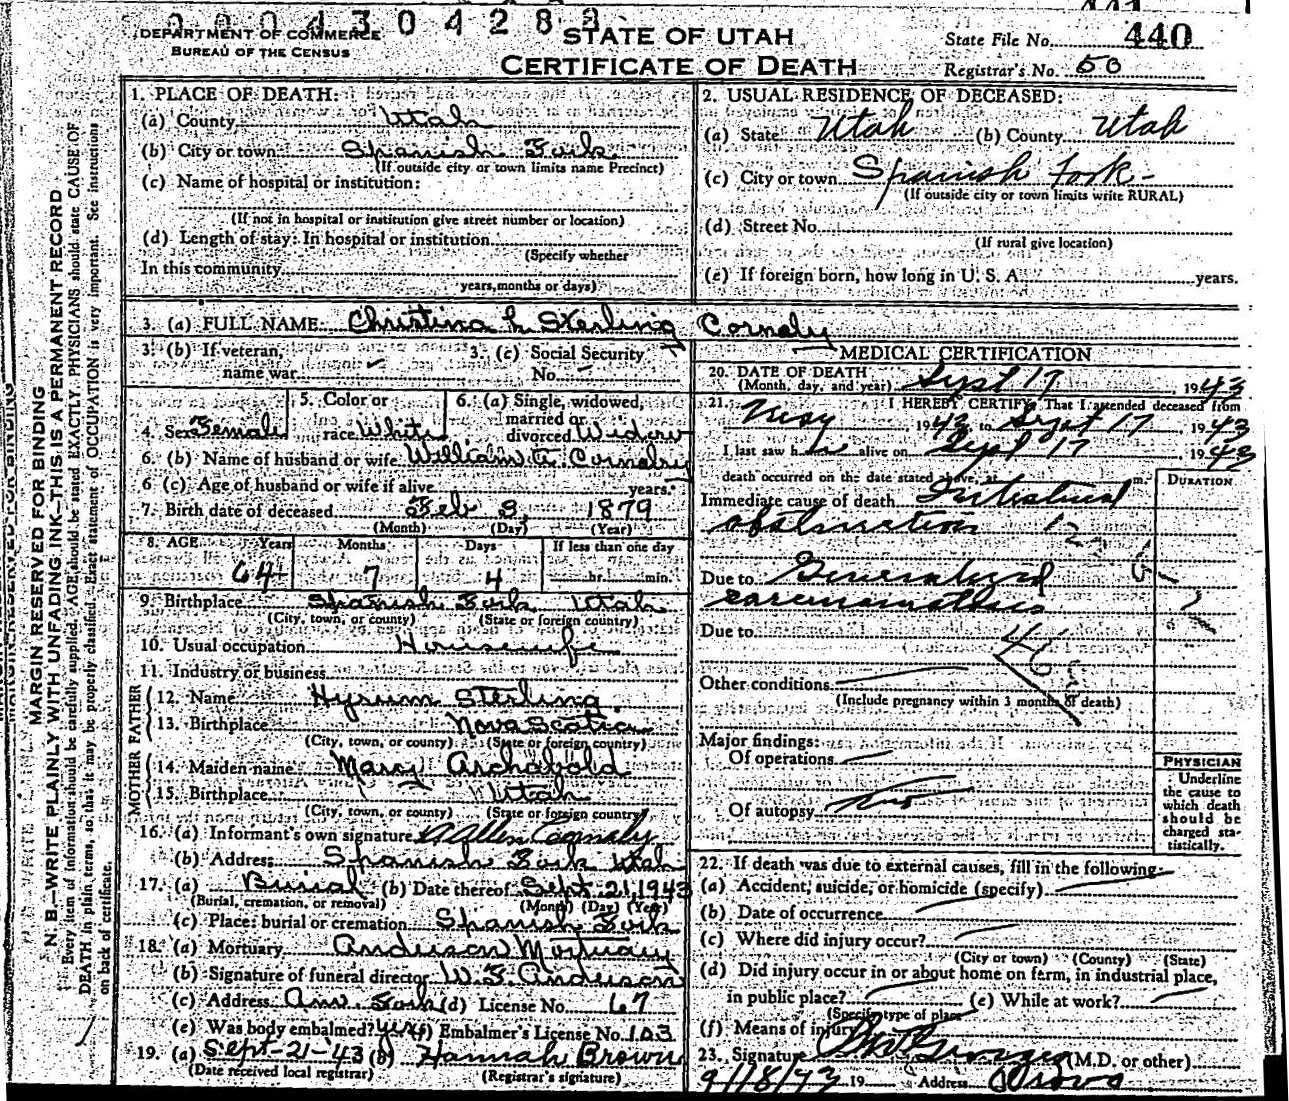 0004304283
DEPARTMENT OF COMMERCE
BUREAU OF THE CENSUS
STATE OF UTAH
CERTIFICATE OF DEATH
441
State File No. 440
Registrar's No. 50
MARGIN RESERVED FOR BINDING
N. B.—WRITE PLAINLY WITH UNFADING INK—THIS IS A PERMANENT RECORD
Every item of information should be carefully supplied. AGE should be stated EXACTLY. PHYSICIANS should state CAUSE OF
DEATH in plain terms, so that it may be properly classified. Exact statement of OCCUPATION is very important. See instructions
on back of certificate.
1. PLACE OF DEATH:
(a) County Utah
(b) City or town Spanish Fork
(If outside city or town limits name Precinct)
(c) Name of hospital or institution:
(If not in hospital or institution give street number or location)
(d) Length of stay: In hospital or institution
(Specify whether
In this community
years, months or days)
2. USUAL RESIDENCE OF DECEASED:
(a) State Utah (b) County Utah
(c) City or town Spanish Fork
(If outside city or town limits write RURAL)
(d) Street No.
(If rural give location)
(e) If foreign born, how long in U. S. A. years.
3. (a) FULL NAME Christina L. Sterling Cornaby
3. (b) If veteran, name war
3. (c) Social Security No.
4. Sex Female
5. Color or race White
6. (a) Single, widowed, married or divorced Widow
6. (b) Name of husband or wife William A. Cornaby
6 (c) Age of husband or wife if alive years.
7. Birth date of deceased Feb 3, 1879
(Month) (Day) (Year)
8. AGE Years Months Days If less than one day
64 7 4 hr. min.
9. Birthplace Spanish Fork Utah
(City, town, or county) (State or foreign country)
10. Usual occupation Housewife
11. Industry or business
FATHER
12. Name Hyrum Sterling
13. Birthplace Nova Scotia
(City, town, or county) (State or foreign country)
MOTHER
14. Maiden name Mary Archabold
15. Birthplace Utah
(City, town, or county) (State or foreign country)
16. (a) Informant's own signature A Allen Cornaby
(b) Address Spanish Fork Utah
17. (a) Burial (b) Date thereof Sept. 21, 1943
(Burial, cremation, or removal) (Month) (Day) (Year)
(c) Place: burial or cremation Spanish Fork
18. (a) Mortuary Anderson Mortuary
(b) Signature of funeral director W. F. Anderson
(c) Address Am. Fork (d) License No. 67
(e) Was body embalmed? yes (f) Embalmer's License No. 103
19. (a) Sept-21-'43 (b) Hannah Brown
(Date received local registrar) (Registrar's signature)
MEDICAL CERTIFICATION
20. DATE OF DEATH
(Month, day, and year) Sept 17, 1943
21. I HEREBY CERTIFY, That I attended deceased from
May 1943 to Sept 17 1943
I last saw h alive on Sept 17 1943
death occurred on the date stated above, at m.
DURATION
Immediate cause of death Intestinal
obstruction
Due to Generalized
carcinomatosis
Due to
46
Other conditions
(Include pregnancy within 3 months of death)
Major findings:
Of operations
Of autopsy no
PHYSICIAN
Underline
the cause to
which death
should be
charged sta-
tistically.
22. If death was due to external causes, fill in the following:
(a) Accident, suicide, or homicide (specify)
(b) Date of occurrence
(c) Where did injury occur?
(City or town) (County) (State)
(d) Did injury occur in or about home on farm, in industrial place,
in public place? (e) While at work?
(Specify type of place)
(f) Means of injury
23. Signature (M.D. or other)
9/18/43 19 Address Provo